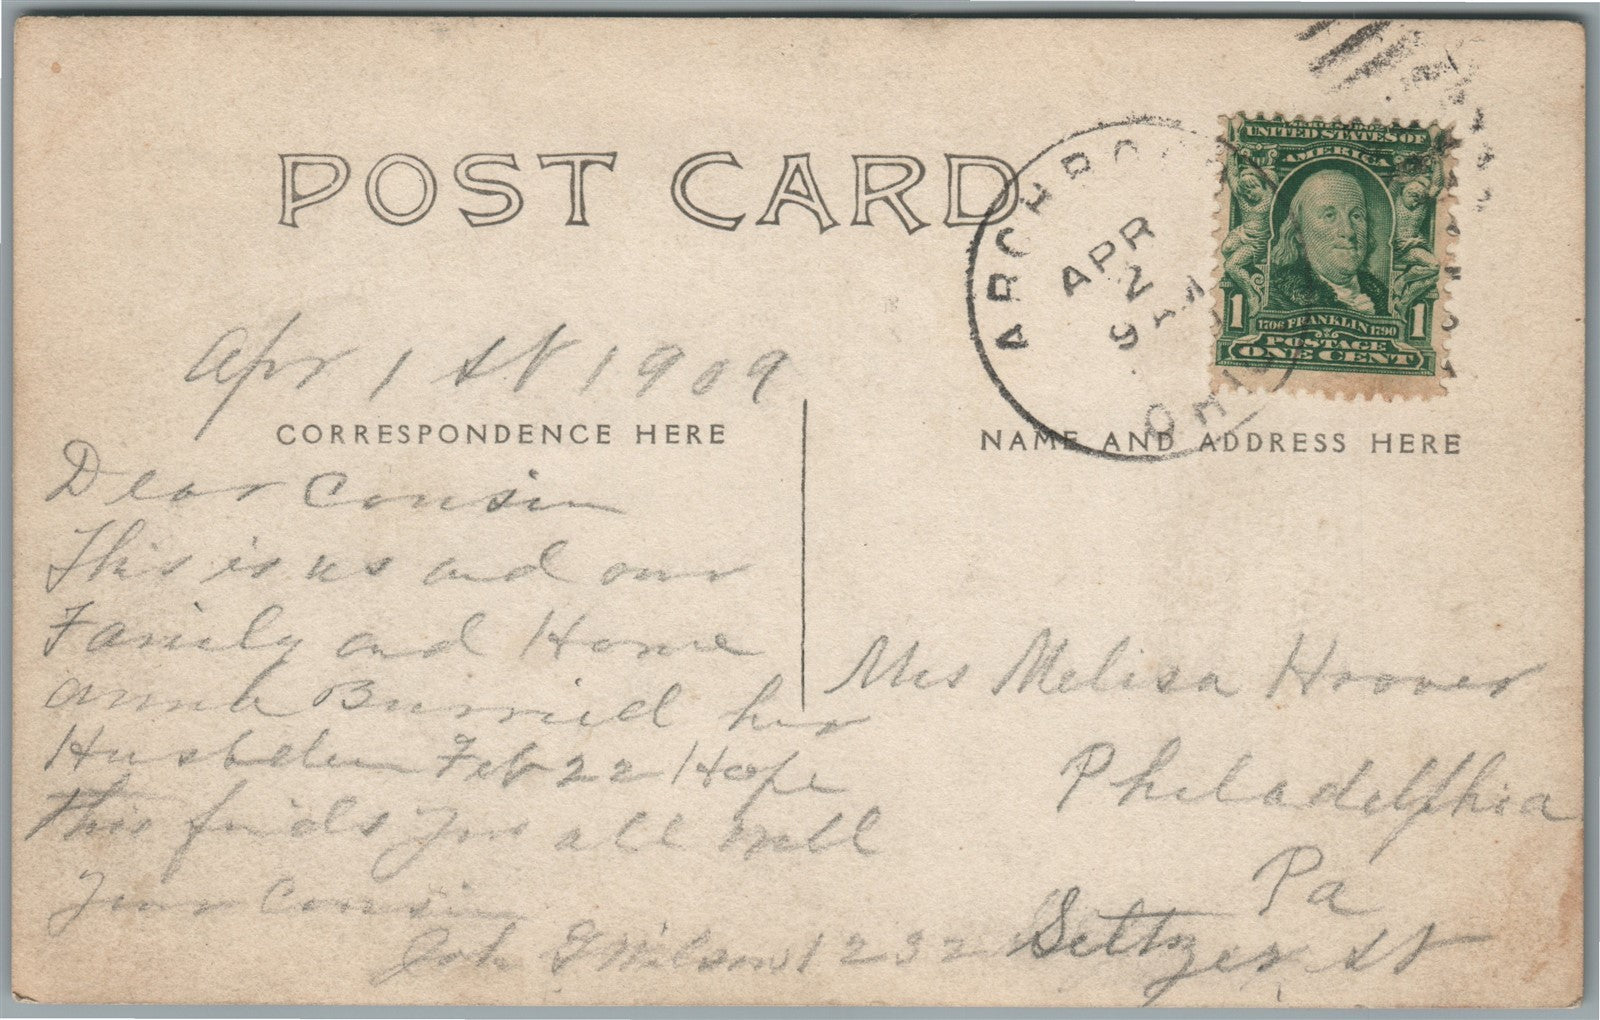 POST CARD
ARCHBO
APR
2
9 AM
OHIO
SERIES 1902
UNITED STATES OF
AMERICA
1 1706 FRANKLIN 1790 1
POSTAGE
ONE CENT
Apr 1 st 1909
CORRESPONDENCE HERE
Dear Cousin
This is us and our
Family and Home
anna Burried her
Husbden Feb 22 Hope
this finds you all well
Your Cousin
Joh G Wilson
NAME AND ADDRESS HERE
Mrs Melisa Hoover
Philadelphia
Pa
1232 Seltzer st